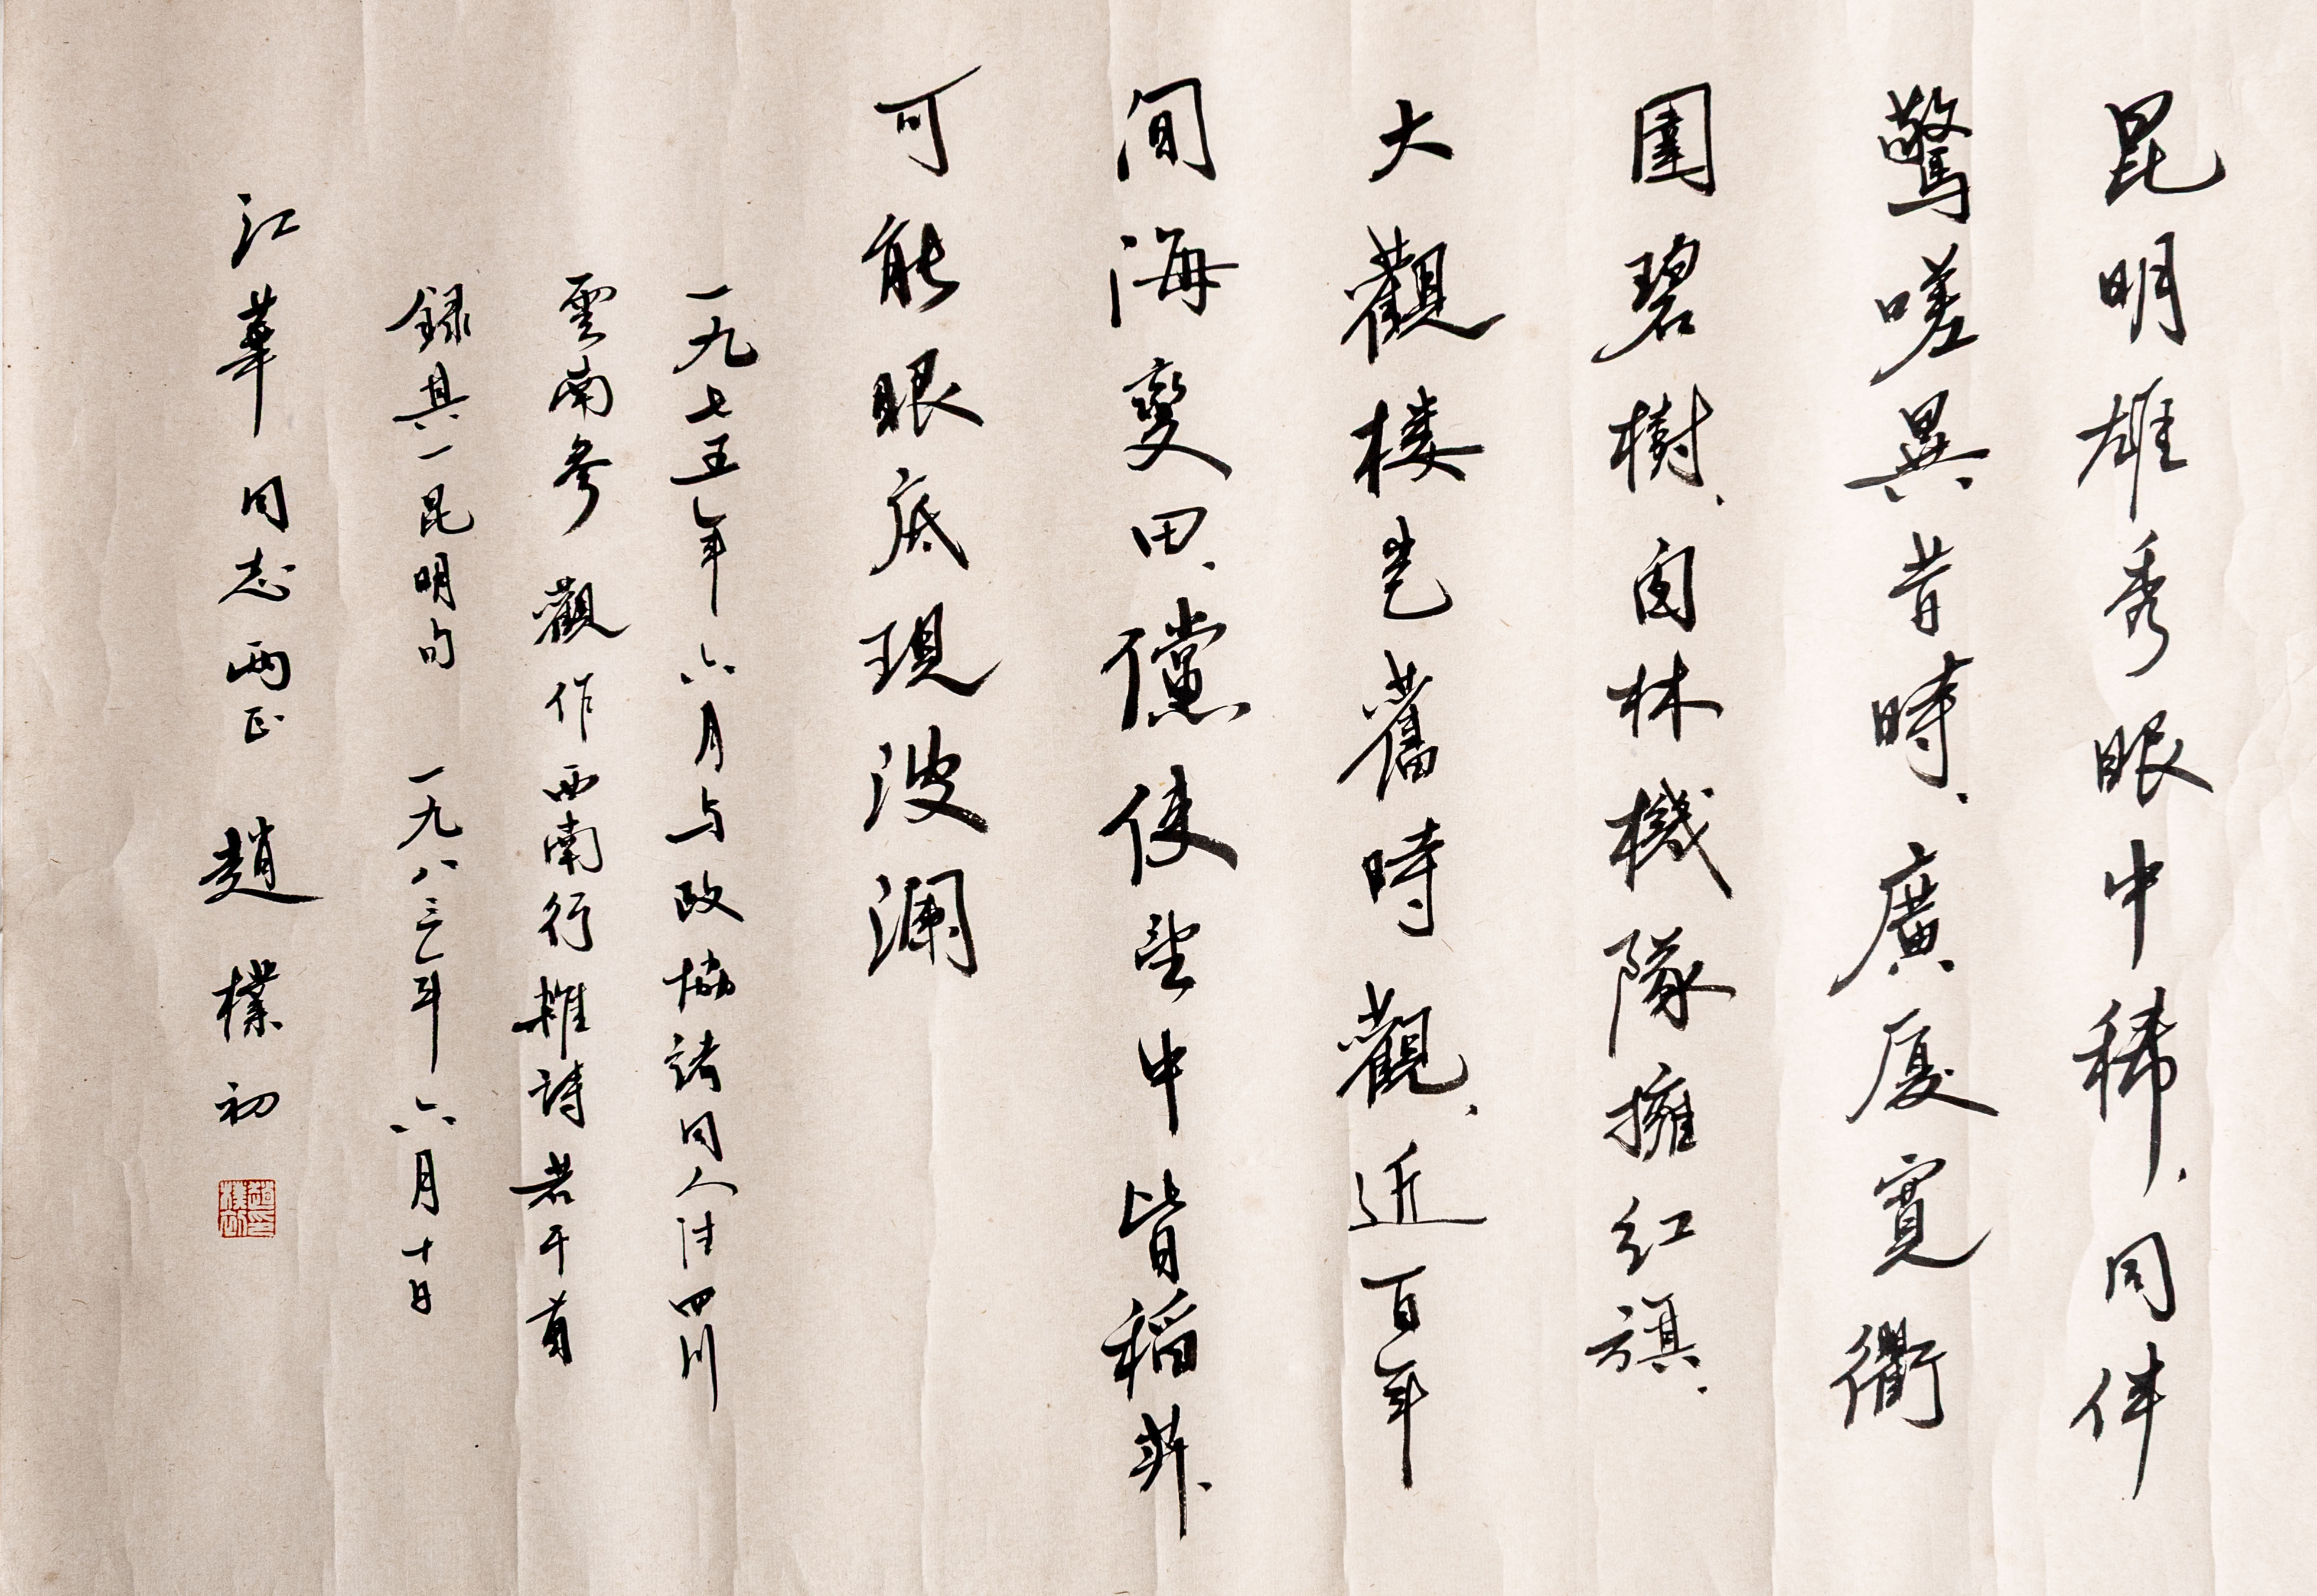 昆明雄秀眼中稀、同伴
驚嗟異昔時、廣厦寬衢
圍碧樹、園林機隊擁紅旗、
大觀楼豈舊時觀、近百年
间海變田、儻使望中皆稻菽、
可能眼底現波澜
一九七五年六月与政協諸同人往四川
雲南參觀作西南行雜詩若干首
録其一昆明句 一九八三年六月十日
江華同志两正 趙樸初
趙樸初印